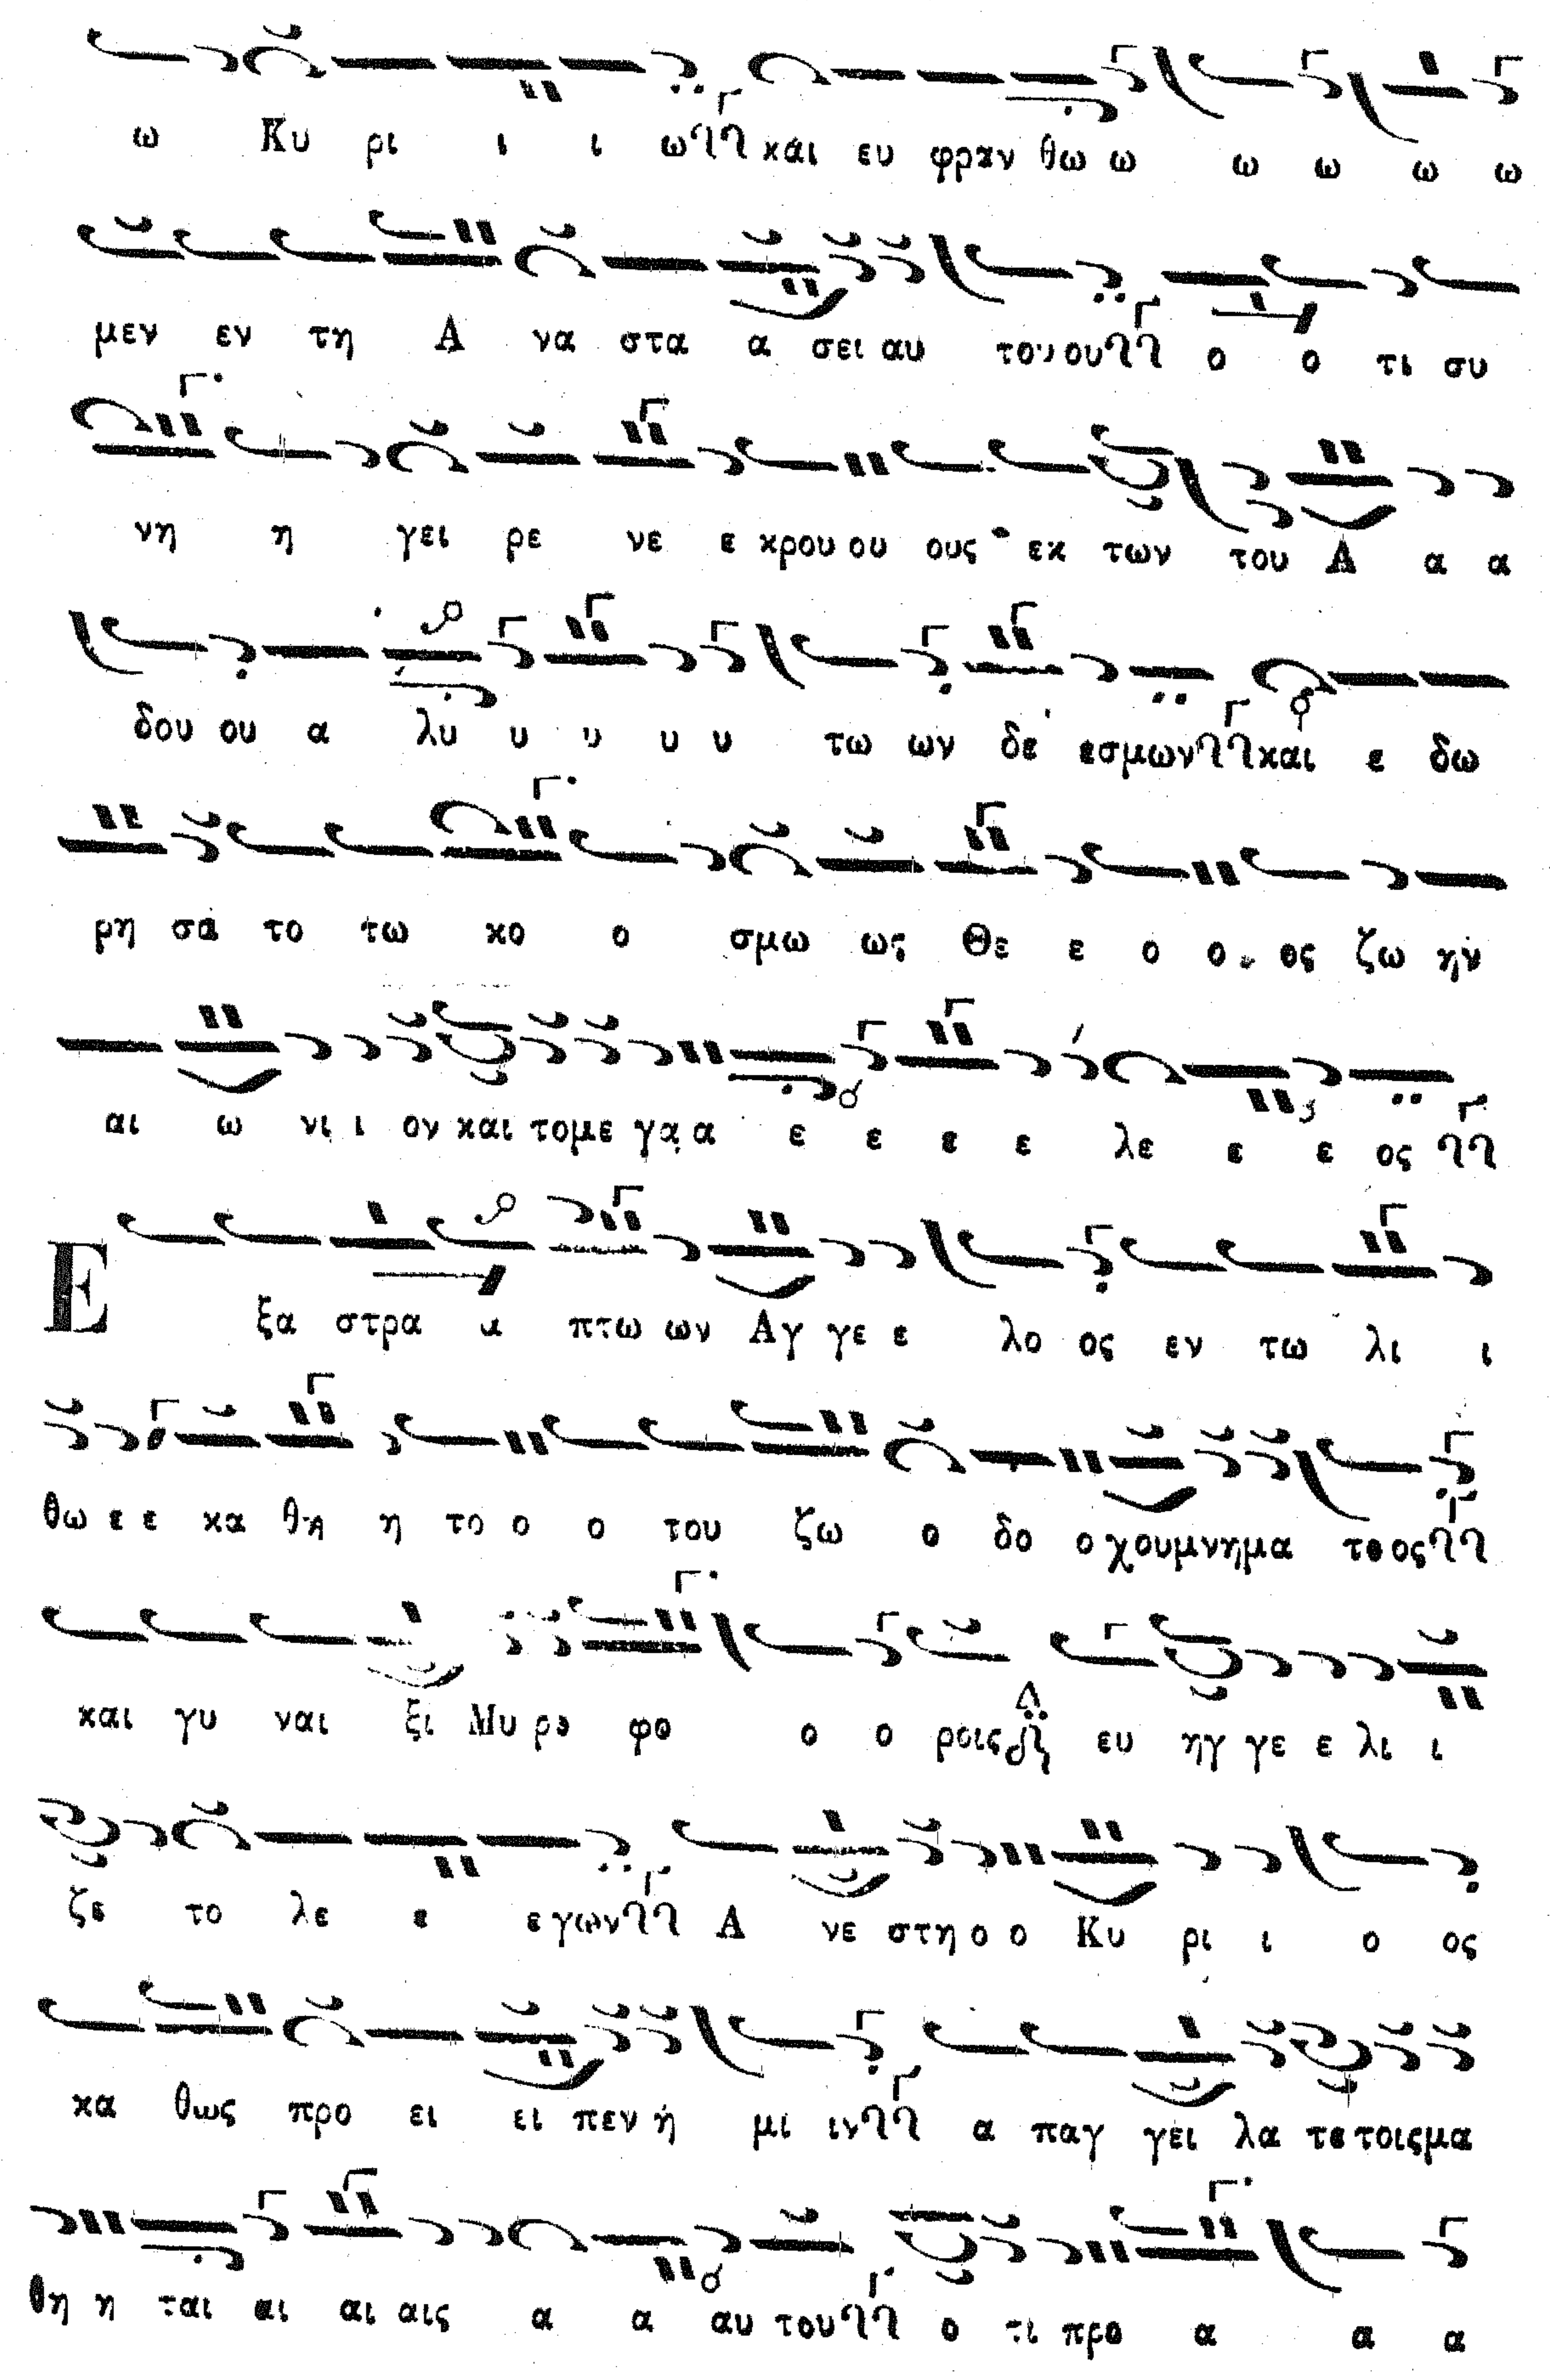 ω Κυ ρι ι ι ω και ευ φραν θω ω ω ω ω ω
μεν εν τη Α να στα α σει αυ του ου ο ο τι συ
νη η γει ρε νε ε κρου ου ους εκ των του Α α α
δου ου α λυ υ υ υ υ τω ων δε εσμων και ε δω
ρη σα το τω κο ο σμω ως Θε ε ο ο ος ζω ην
αι ω νι ι ον και το με γα α ε ε ε ε λε ε ε ος
Ε ξα στρα α πτω ων Αγ γε ε λο ος εν τω λι ι
θω ε ε κα θη η το ο ο του ζω ο δο ο χου μνημα το ος
και γυ ναι ξι Μυ ρο φο ο ο ροις ευ ηγ γε ε λι ι
ζε το λε ε ε γων Α νε στη ο ο Κυ ρι ι ο ος
κα θως προ ει ει πεν ή μι ιν α παγ γει λα τε τοις μα
θη η ται αι αι αις α α αυ του ο τι προ α α α